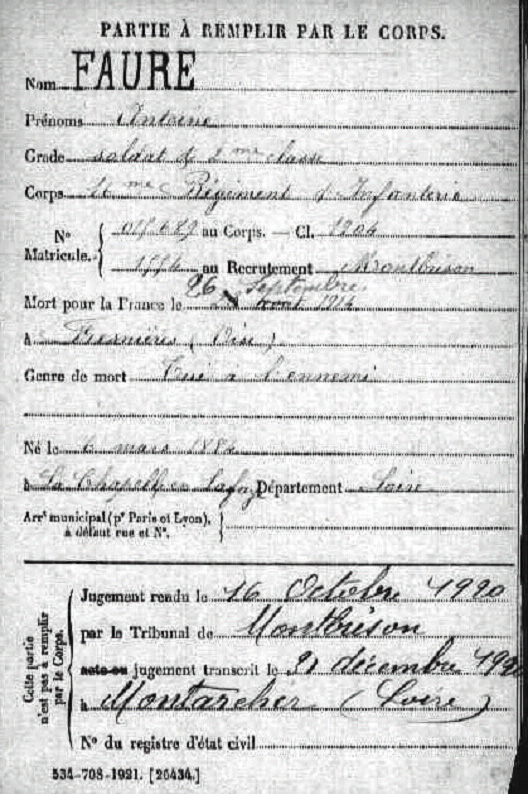 PARTIE À REMPLIR PAR LE CORPS.
Nom FAURE
Prénoms Antoine
Grade soldat de 2me classe
Corps Régiment d'Infanterie
N° Matricule. au Corps. — Cl. 1904
au Recrutement Montbrison
26 Septembre
Mort pour la France le août 1914
à (Oise)
Genre de mort Tué à l'ennemi
Né le 6 mars 1884
à La Chapelle en Lafaye Département Loire
Arrt municipal (pr Paris et Lyon),
à défaut rue et N°.
Cette partie n'est pas à remplir par le Corps.
Jugement rendu le 16 Octobre 1920
par le Tribunal de Montbrison
acte ou jugement transcrit le 21 décembre
à Montarcher (Loire)
N° du registre d'état civil
534-708-1921. [26434.]